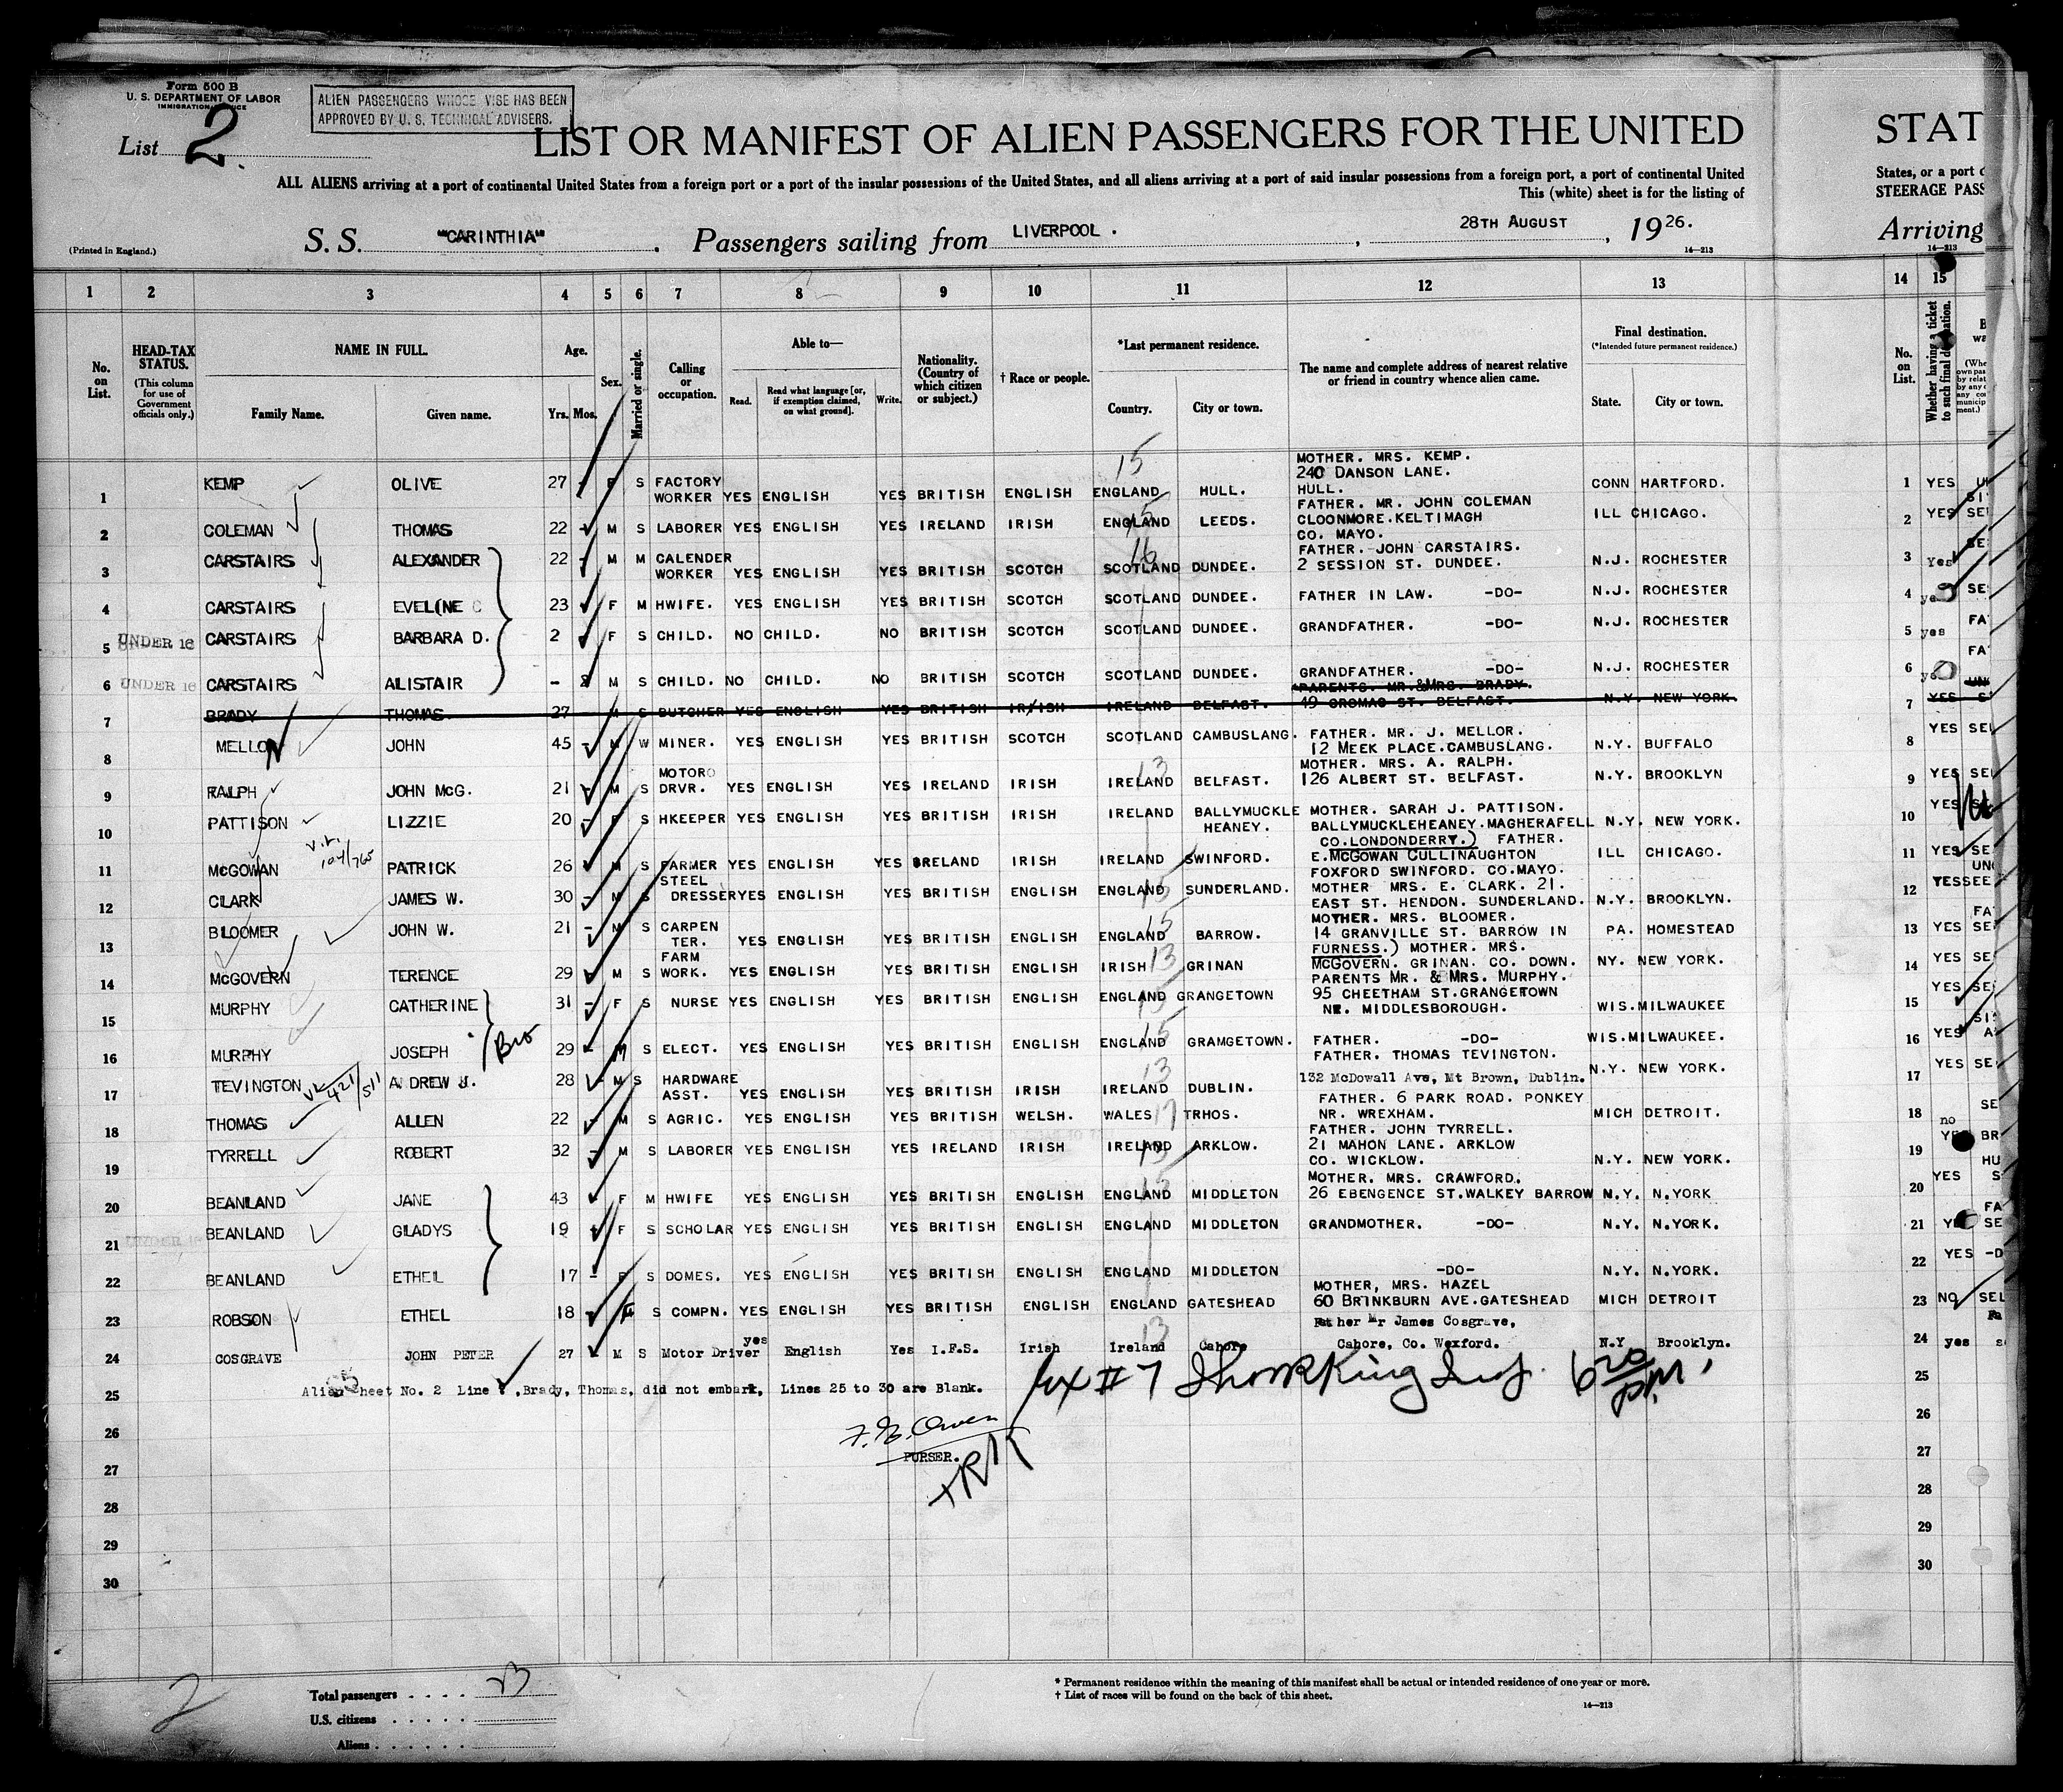 Form 500 B
U. S. DEPARTMENT OF LABOR
IMMIGRATION SERVICE
ALIEN PASSENGERS WHOSE VISE HAS BEEN
APPROVED BY U. S. TECHNICAL ADVISERS.
List 2.
LIST OR MANIFEST OF ALIEN PASSENGERS FOR THE UNITED STAT
ALL ALIENS arriving at a port of continental United States from a foreign port or a port of the insular possessions of the United States, and all aliens arriving at a port of said insular possessions from a foreign port, a port of continental United States, or a port
This (white) sheet is for the listing of STEERAGE PASS
(Printed in England.) S. S. "CARINTHIA" . Passengers sailing from LIVERPOOL . , 28TH AUGUST , 1926. Arriving
14—213 14—213
1 2 3 4 5 6 7 8 9 10 11 12 13 14 15
No. on List.
HEAD-TAX STATUS.
(This column for use of Government officials only.)
NAME IN FULL.
Family Name. Given name.
Age.
Yrs. Mos.
Sex.
Married or single.
Calling or occupation.
Able to—
Read. Read what language [or, if exemption claimed, on what ground]. Write.
Nationality. (Country of which citizen or subject.)
† Race or people.
*Last permanent residence.
Country. City or town.
The name and complete address of nearest relative or friend in country whence alien came.
Final destination.
(*Intended future permanent residence.)
State. City or town.
No. on List.
Whether having a ticket to such final destination.
1 KEMP OLIVE 27 - F S FACTORY WORKER YES ENGLISH YES BRITISH ENGLISH ENGLAND 15 HULL. MOTHER. MRS. KEMP. 240 DANSON LANE. HULL. CONN HARTFORD. 1 YES
2 COLEMAN THOMAS 22 - M S LABORER YES ENGLISH YES IRELAND IRISH ENGLAND 15 LEEDS. FATHER. MR. JOHN COLEMAN CLOONMORE.KELTIMAGH CO. MAYO. ILL CHICAGO. 2 YES
3 CARSTAIRS ALEXANDER 22 - M M CALENDER WORKER YES ENGLISH YES BRITISH SCOTCH SCOTLAND 16 DUNDEE. FATHER. JOHN CARSTAIRS. 2 SESSION ST. DUNDEE. N.J. ROCHESTER 3 Yes
4 CARSTAIRS EVELINE C 23 F M HWIFE. YES ENGLISH YES BRITISH SCOTCH SCOTLAND DUNDEE. FATHER IN LAW. -DO- N.J. ROCHESTER 4 yes
5 UNDER 16 CARSTAIRS BARBARA D. 2 F S CHILD. NO CHILD. NO BRITISH SCOTCH SCOTLAND DUNDEE. GRANDFATHER. -DO- N.J. ROCHESTER 5 yes
6 UNDER 16 CARSTAIRS ALISTAIR - M S CHILD. NO CHILD. NO BRITISH SCOTCH SCOTLAND DUNDEE. GRANDFATHER. -DO- N.J. ROCHESTER 6 yes
7 BRADY THOMAS. 27 - M S BUTCHER YES ENGLISH YES BRITISH IRISH IRELAND BELFAST. PARENTS. MR.&MRS. BRADY. 49 CROMAC ST. BELFAST. N.Y. NEW YORK 7 YES
8 MELLOR JOHN 45 - M W MINER. YES ENGLISH YES BRITISH SCOTCH SCOTLAND CAMBUSLANG. FATHER. MR. J. MELLOR. 12 MEEK PLACE.CAMBUSLANG. N.Y. BUFFALO 8 YES
9 RALPH JOHN McG. 21 - M S MOTOR DRVR. YES ENGLISH YES IRELAND IRISH IRELAND 13 BELFAST. MOTHER. MRS. A. RALPH. 126 ALBERT ST. BELFAST. N.Y. BROOKLYN 9 YES
10 PATTISON LIZZIE 20 - F S HKEEPER YES ENGLISH YES BRITISH IRISH IRELAND BALLYMUCKLE HEANEY. MOTHER. SARAH J. PATTISON. BALLYMUCKLEHEANEY.MAGHERAFELL CO.LONDONDERRY.) N.Y. NEW YORK. 10 YES
11 McGOWAN PATRICK 26 M S FARMER YES ENGLISH YES IRELAND IRISH IRELAND SWINFORD. FATHER. E.McGOWAN CULLINAUGHTON FOXFORD SWINFORD. CO.MAYO. ILL CHICAGO. 11 YES
12 CLARK JAMES W. 30 - M S STEEL DRESSER YES ENGLISH YES BRITISH ENGLISH ENGLAND 15 SUNDERLAND. MOTHER MRS. E. CLARK. 21. EAST ST. HENDON. SUNDERLAND. N.Y. BROOKLYN. 12 YES
13 BLOOMER JOHN W. 21 - M S CARPEN TER. YES ENGLISH YES BRITISH ENGLISH ENGLAND 15 BARROW. MOTHER. MRS. BLOOMER. 14 GRANVILLE ST. BARROW IN FURNESS.) PA. HOMESTEAD 13 YES
14 McGOVERN TERENCE 29 M S FARM WORK. YES ENGLISH YES BRITISH ENGLISH IRISH 13 GRINAN MOTHER. MRS. McGOVERN. GRINAN. CO. DOWN. NY. NEW YORK. 14 YES
15 MURPHY CATHERINE 31 - F S NURSE YES ENGLISH YES BRITISH ENGLISH ENGLAND 15 GRANGETOWN PARENTS MR. & MRS. MURPHY. 95 CHEETHAM ST.GRANGETOWN NR. MIDDLESBOROUGH. WIS.MILWAUKEE 15 YES
16 MURPHY JOSEPH Bro 29 M S ELECT. YES ENGLISH YES BRITISH ENGLISH ENGLAND 15 GRAMGETOWN. FATHER. -DO- WIS.MILWAUKEE. 16 YES
17 TEVINGTON ANDREW J. 28 - M S HARDWARE ASST. YES ENGLISH YES BRITISH IRISH IRELAND 13 DUBLIN. FATHER. THOMAS TEVINGTON. 132 McDowall Ave, Mt Brown, Dublin. N.Y. NEW YORK. 17 YES
18 THOMAS ALLEN 22 - M S AGRIC. YES ENGLISH YES BRITISH WELSH. WALES 17 TRHOS. FATHER. 6 PARK ROAD. PONKEY NR. WREXHAM. MICH DETROIT. 18 no
19 TYRRELL ROBERT 32 - M S LABORER YES ENGLISH YES IRELAND IRISH IRELAND 13 ARKLOW. FATHER. JOHN TYRRELL. 21 MAHON LANE. ARKLOW CO. WICKLOW. N.Y. NEW YORK. 19 YES
20 BEANLAND JANE 43 F M HWIFE YES ENGLISH YES BRITISH ENGLISH ENGLAND 15 MIDDLETON MOTHER. MRS. CRAWFORD. 26 EBENGENCE ST.WALKEY BARROW N.Y. N.YORK 20 YES
21 UNDER 16 BEANLAND GLADYS 19 F S SCHOLAR YES ENGLISH YES BRITISH ENGLISH ENGLAND MIDDLETON GRANDMOTHER. -DO- N.Y. N.YORK. 21 YES
22 BEANLAND ETHEL 17 - F S DOMES. YES ENGLISH YES BRITISH ENGLISH ENGLAND MIDDLETON -DO- N.Y. N.YORK. 22 YES -D
23 ROBSON ETHEL 18 F S COMPN. YES ENGLISH YES BRITISH ENGLISH ENGLAND GATESHEAD MOTHER, MRS. HAZEL 60 BRINKBURN AVE.GATESHEAD MICH DETROIT 23 NO SEL
24 COSGRAVE JOHN PETER 27 - M S Motor Driver yes English Yes I.F.S. Irish Ireland 13 Cahore Father Mr James Cosgrave, Cahore, Co. Wexford. N.Y Brooklyn. 24 yes
25 Alien Sheet No. 2 Line 7 ,Brady, Thomas, did not embark, Lines 25 to 30 are Blank. 25
26 F. G. Owen 26
27 PURSER. 27
28 28
29 29
30 30
Total passengers . . . . 23
U.S. citizens . . . . .
Aliens . . . . . .
2
* Permanent residence within the meaning of this manifest shall be actual or intended residence of one year or more.
† List of races will be found on the back of this sheet.
14—213